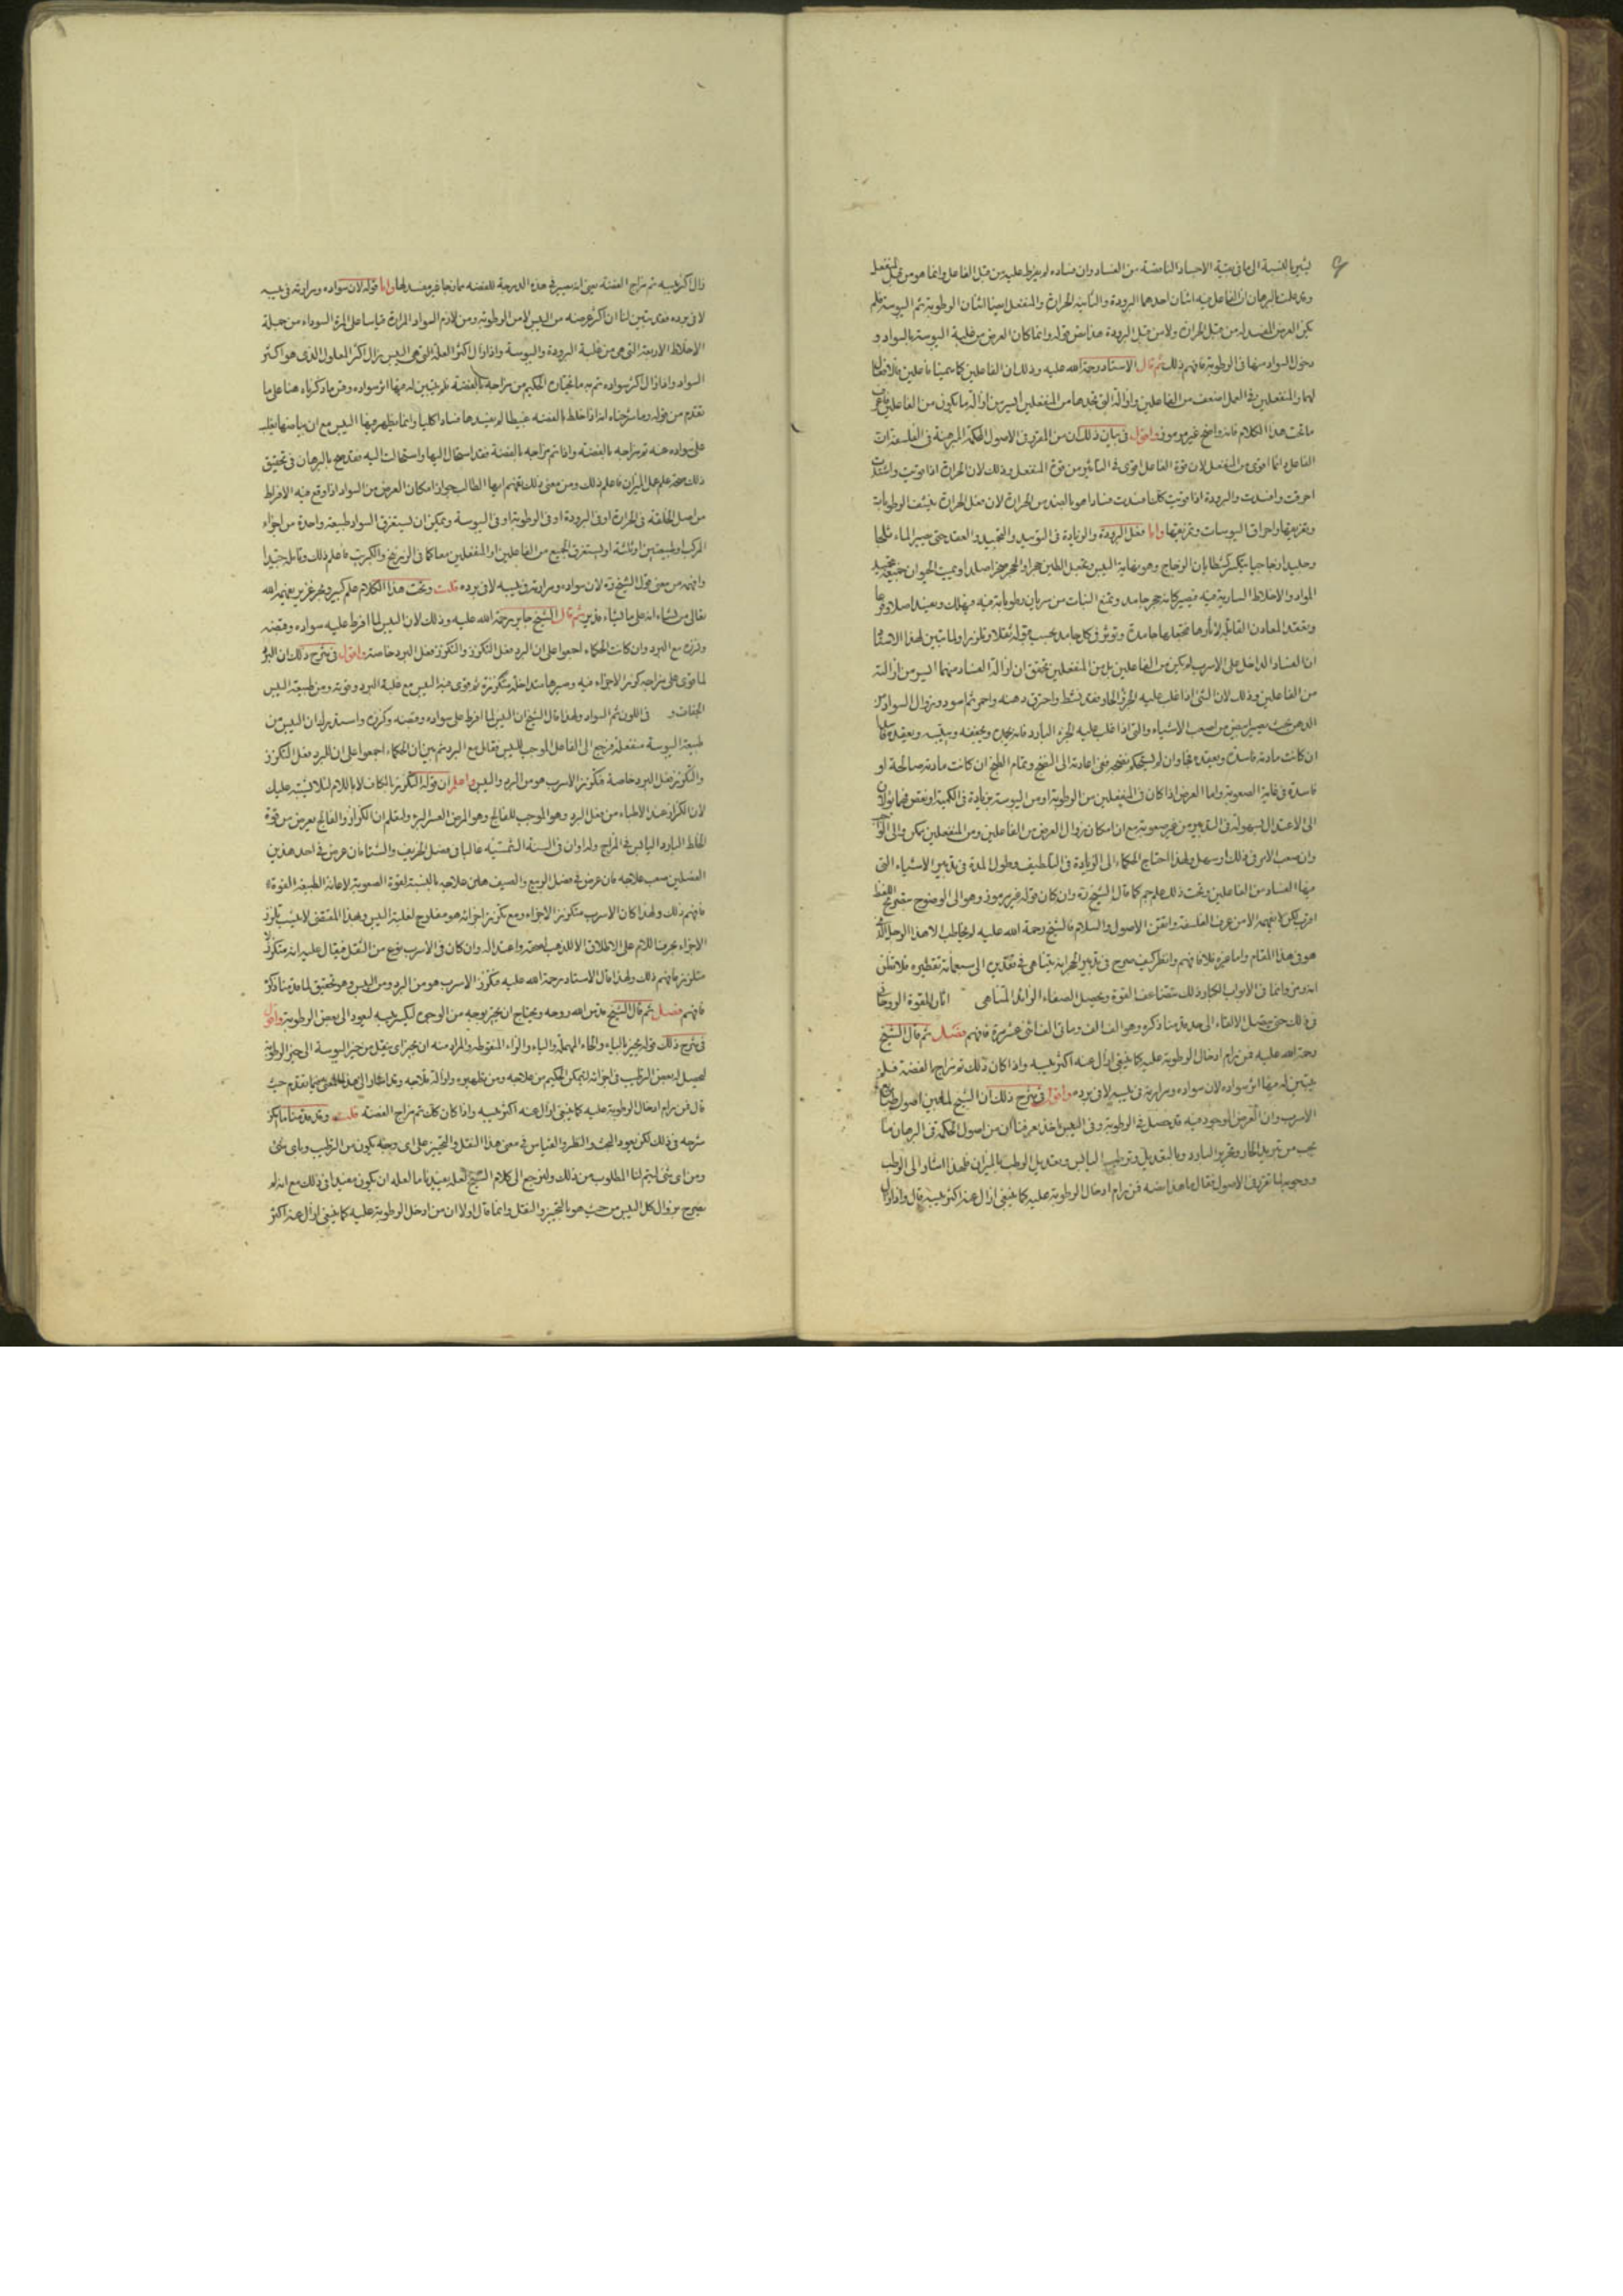 يشير بالنسبة الى ما فى بقية الاجساد الناقصة من الفساد وان فساده لم يفرط عليه من قبل الفاعل وانما هو من قبل المنفعل
وقد علمت بالبرهان ان الفاعل فيه اثنان احدهما البرودة والثانية الحرارة والمنفعل ايضا اثنان الرطوبة ثم اليبوسة فلم
يكن العرض المفسد له من قبل الحرارة ولا من قبل البرودة هذا نص قوله وانما كان العرض من غلبة اليبوسة بالسواد و
دخول السواد منها فى الرطوبة فافهم ذلك ثم قال الاستاد رحمة الله عليه وذلك ان الفاعلين كما سمينا فاعلين بالانفعال
لهما والمنفعلين فى العمل اضعف من الفاعلين وازالة التى نجدها من المنفعلين ايسر من ازالة ما يكون من الفاعلين فاعرف
ما تحت هذا الكلام فانه واضح غير مرموز واقول فى بيان ذلك ان من المقرر فى الاصول الحكمة المبرهنة فى الفلسفة ان
الفاعل انما اقوى من المنفعل لان قوة الفاعل اقوى فى التاثير من قوة المنفعل وذلك لان الحرارة اذا قويت واشتدت
احرقت وافسدت والبرودة اذا قويت كذلك افسدت فسادا هو بالضد من الحرارة لان فعل الحرارة ينشف الرطوبات
وتفريقها واحراق اليبوسات وتفريقها واما فعل البرودة والزيادة فى التبريد والتجميد والعقد حتى يصير الماء ثلجا
وجليدا زجاجيا يتكسر كشظايا الزجاج وهو بغاية اليبس يقبل الطين حجرا والحجر صخرا صلدا ويميت الحيوان
المواد والاخلاط السارية فيه فيصير كانه حجر جامد ويمنع النبات من سريان رطوباته فيه فيهلك ويفسد اصلا وفرعا
وتعقد المعادن القابلة
ان الفساد الداخل على الاسرب لم يكن من الفاعلين بل من المنفعلين تحقق ان ازالة الفساد منهما ايسر من ازالته
من الفاعلين وذلك لان الشئ اذا غلب عليه الجزء الحار فقد نشط واحترق دهنه واحمر ثم اسود وزوال السواد من
الدهن بحيث يصير ابيض من اصعب الاشياء والشئ اذا غلب عليه الجزء البارد فانه يجمده ويجففه وييبسه ويعقد
ان كانت مادته فاسدة وان لم يستحكم نضجه ففى اعادته الى النضج وتمام الطبخ ان كانت مادته صالحة او
فاسدة فى غاية الصعوبة واما العرض اذا كان فى المنفعلين من الرطوبة او من اليبوسة بزيادة فى الكمية او نقص فما
الى الاعتدال بسهولة فى التدبير من غير صعوبة مع ان امكان زوال العرض من الفاعلين ومن المنفعلين ممكن
وان صعب الامر فى ذلك او سهل ولهذا احتاج الحكماء الى الزيادة فى التلطيف وطول المدة فى تدبير الاشياء التى
فيها الفساد من الفاعلين وتحت ذلك علم جم كما قال الشيخ وان كان قوله غير مرموز وهو الى الوضوح
اقرب لكن لا يفهمه الا من عرف الفلسفة واتقن الاصول والسلام فالشيخ رحمة الله عليه لم يخاطب لاهذا الرجل الذى
هو فى هذا المقام واما غيره فلا فافهم وانظر كيف صرح فى تدبير الحجر انه يتناهى فى تقديره الى سبعمأئة تقطيره فلا تظن
فى ذلك حتى يتصل الالقاء الى حد ما قدمنا ذكره وهو الف الف وما فى الف اثنى عشر مرة فافهم فصل ثم قال الشيخ
رحمة الله عليه فمن رام ادخال الرطوبة عليه كما ينبغى ازال عنه اكثر عيبه واذا كان ذلك تم مزاجه بالفضة فلم
يتبين له فيها اثر سواده لان سواده ومرارته فى يبسه لا فى برده واقول فى شرح ذلك ان الشيخ
الاسرب وان العرض الموجود فيه قد يحصل فى الرطوبة وفى اليبس اخذ يعرفنا ان من اصول الحكمة فى البرهان ما
يجب من تبريد الحار وتحرير البارد وبالتعديل وترطيب اليابس وتعديل الرطب بالميزان فلهذا اشار الى الرطب
ووجوبه لما تقرر فى الاصول فقال ما هذا نصه فمن رام ادخال الرطوبة عليه كما ينبغى ازال عنه اكثر عيبه قال واذا زال
زال اكثر عيبه تم مزاج الفضة يعنى انه يصير فى هذه الدرجة للفضة ممازجا غير مفسد لها واما قوله لان سواده ومرارته فى يبسه
لا فى برده فقد تبين لنا ان اكثر عرضه من اليبس لا من الرطوبة ومن لازم السواد المرارة قياسا على المرة السوداء من جملة
الاخلاط الاربعة التى هى من غلبة البرودة واليبوسة واذا زال اكثر العلة التى هى اليبس زال اكثر المعلول الذى هو اكثر
السواد واذا زال اكثر سواده تم به ما تحتاج الحكيم من مزاجه بالفضة فلم يتبين له فيها اثر سواده وفسر ما ذكرناه هنا على ما
تقدم من قوله وما شرحناه انه اذا خلط بالفضة عبيطا لم يفسدها فسادا كليا وانما يظهر فيها اليبس مع ان بياضها يغلب
على سواده عنه تم مزاجه بالفضة واذا تم مزاجه بالفضة فقد استحال اليها واستحالت اليه فقد صح بالبرهان فى تحقيق
ذلك صحة علم عمل الميزان فاعلم ذلك ومن معنى ذلك تفهم ايها الطالب جواز امكان العرض من السواد اذا وقع فيه الافراط
من اصل الخلقة فى الحرارة او فى البرودة او فى الرطوبة او فى اليبوسة ويمكن ان يستغرق السواد طبيعة واحدة من اجزاء
المركب او طبيعتين او ثلاثة او يستغرق الجميع من الفاعلين او المنفعلين معا كما فى الزرنيخ والكبريت فاعلم ذلك وتامله جيدا
وافهمه من معنى قول الشيخ لان سواده ومرارته فى يبسه لا فى برده قلت وتحت هذا الكلام علم كبير وبحر غزير يفهمه الله
تعالى من يشاء انه على ما يشاء قدير ثم قال الشيخ جابر رحمة الله عليه وذلك لان اليبس لما افرط عليه سواده وقبضه
وكززه مع البرد وان كانت الحكماء اجمعوا على ان البرد فعل التكزز والتكزز فعل البرد خاصة واقول فى شرح ذلك ان البرد
لما قوى على مزاجه كزز الاجزاء فيه وصيرها متداخلة متكززة ثم قوى فيه اليبس مع غلبة البرد وقوته ومن طبيعة اليبس
الجفاف و فى اللون ثم السواد ولهذا قال الشيخ ان اليبس لما افرط على سواده وقبضه وكززه واستدل به ان اليبس من
طبيعة اليبوسة منفعلة فرجع الى الفاعل الموجب لليبس فقال مع البرد ثم بين ان الحكماء اجمعوا على ان البرد فعل التكزز
والتكزز فعل البرد خاصة فكزز الاسرب هو من البرد واليبس واعلم ان قوله التكزز بالكاف لا باللام لئلا يشتبه عليك
لان الكزاز عند الاطباء من فعل البرد وهو الموجب للفالج وهو المرض العسر البرؤ ولتعلم ان الكزاز والفالج يعرض من قوة
الخلط البارد اليابس فى المزاج وله اوان فى السنة الشمسية غالبا فى فصل الخريف والشتاء فان عرض فى احد هذين
الفصلين صعب علاجه فان عرض فى فصل الربيع والصيف هان علاجه بالنسبة لقوة الصعوبة لاعانة الطبيعة القوية
فافهم ذلك ولهذا كان الاسرب متكزز الاجزاء ومع تكزز اجزائه هو مفلوج لغلبة اليبس وهذا المقتضى لا عيب تلزز
الاجزاء بحرف اللام على الاطلاق الا للذهب لصحته واعتداله وان كان فى الاسرب نوع من الثقل فيقال عليه انه متكزز لا
متلزز فافهم ذلك ولهذا قال الاستاد رحمة الله عليه فكزز الاسرب هو من البرد ومن اليبس وهو تحقيق لما قدمنا ذكره
فافهم فصل ثم قال الشيخ قدس الله روحه ويحتاج ان يحيز بوجه من الوجوه ليكسر يبسه ليعود الى بعض الرطوبة واقول
فى شرح ذلك قوله يحيز بالياء والحاء المهملة والياء والزاء المنقوطة والمراد منه ان يحيز اى ينقل من حيز اليبوسة الى حيز الرطوبة
ليحصل له بعض الترطيب فى اجزائه ليتمكن الحكيم من علاجه ومن تطهيره وازالة فلاحه وقد اشار الى هذا المعنى فيما تقدم حيث
قال فمن رام ادخال الرطوبة عليه كما ينبغى ازال عنه اكثر عيبه واذا كان كذلك تم مزاج الفضة قلت وقد قدمنا ما يمكن
شرحه فى ذلك لكن يعود البحث والنظر والقياس فى معنى هذا النقل والتحيز على اى وجه يكون من الترطيب وباى شئ
ومن اى شئ ليتم لنا المطلوب من ذلك ولنرجع الى كلام الشيخ لعله يفيدنا ما لعله ان يكون مفيدا فى ذلك مع انه لم
يصرح بزوال كل اليبس من حيث هو بالتحيز والنقل وانما قال اولا ان من ادخل الرطوبة عليه كما ينبغى ازال عنه اكثر